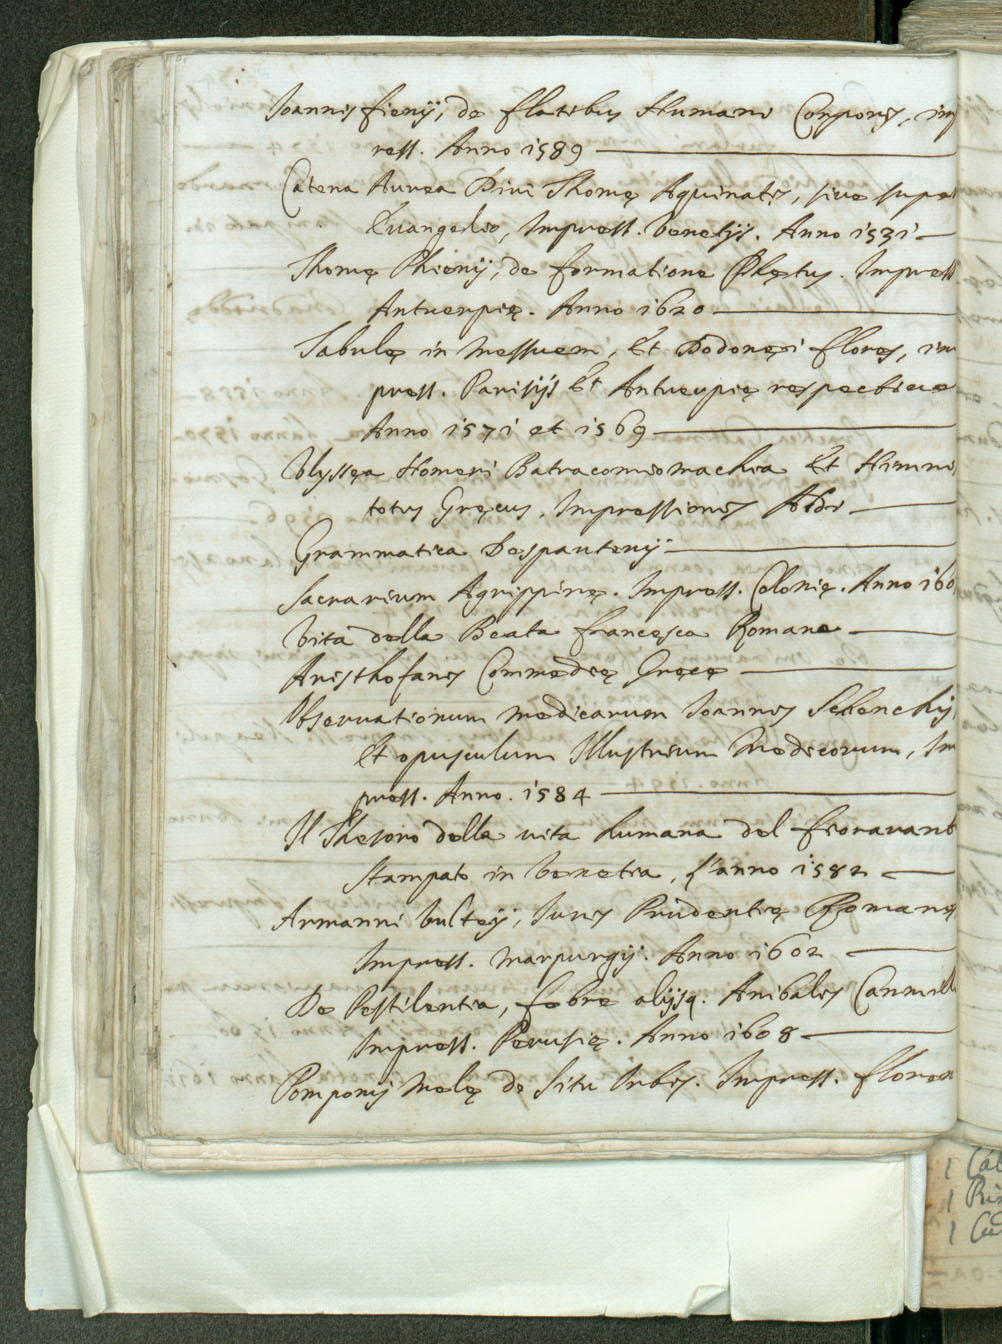 Joannis fienij, de flatibus Humani Corporis, imp
ress. Anno 1589
Catena Aurea Divi Thomę Aquinatis, sive super
Evangelio, Impress. Venetijs. Anno 1531
Thomę Phienij, de formatione Phętus. Impress
Antverpię. Anno 1620
Tabulę in Messuem, Et Dodonęi flores, im
press. Parisijs Et Antverpię respective
Anno 1571 et 1569
Ulyssęa Homeri Batracomiomachia Et Himni
totus Gręcus, Impressionis Aldi
Grammatica Despauterij
Sacrarium Agrippinę. Impress. Colonię. Anno 160
Vita della Beata francesca Romana
Aristhofanis Commedię Gręcę
Observationum medicarum Joannis Schenckij,
Et opusculum Illustrium Medicorum, Im
press. Anno. 1584
Il Thesoro della vita humana del fioravant
stampato in Venetia, l'anno 1582
Armanni Vulteij, Juris Prudentię Romanę
Impress. Marpurgij. Anno 1602
De Pestilentia, febre alijsq. Anibalis Cammill
Impress. Perusię. Anno 1608
Pomponij Melę de Situ Orbis. Impress. floren
1 Cat
1 Ris
1